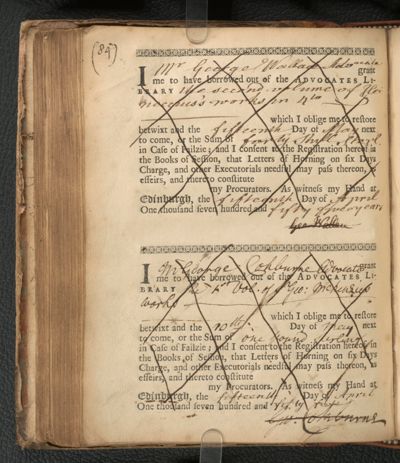 (89)
I Mr George Wallace Advocate grant
me to have borrowed out of the ADVOCATES LI-
BRARY the second volume of
works in 4to
which I oblige me to restore
betwixt and the fifteenth Day of May next
to come, or the Sum of
in Case of Failzie; and I consent to the Registration hereof in
the Books of Session, that Letters of Horning on six Days
Charge, and other Executorials needful may pass thereon, as
effeirs, and thereto constitute
my Procurators. As witness my Hand at
Edinburgh, the fifteenth Day of April
One thousand seven hundred and fifty years
Geo Wallace
I Mr George Cockburne Advocate grant
me to have borrowed out of the ADVOCATES LI-
BRARY the 1st Vol. of Geo: McKenzies
works
which I oblige me to restore
betwixt and the 10th Day of May next
to come, or the Sum of one pound Sterling
in Case of Failzie; and I consent to the Registration hereof in
the Books of Session, that Letters of Horning on six Days
Charge, and other Executorials needful may pass thereon, as
effeirs, and thereto constitute
my Procurators. As witness my Hand at
Edinburgh, the fifteenth Day of April
One thousand seven hundred and fifty
Geo. Cockburne